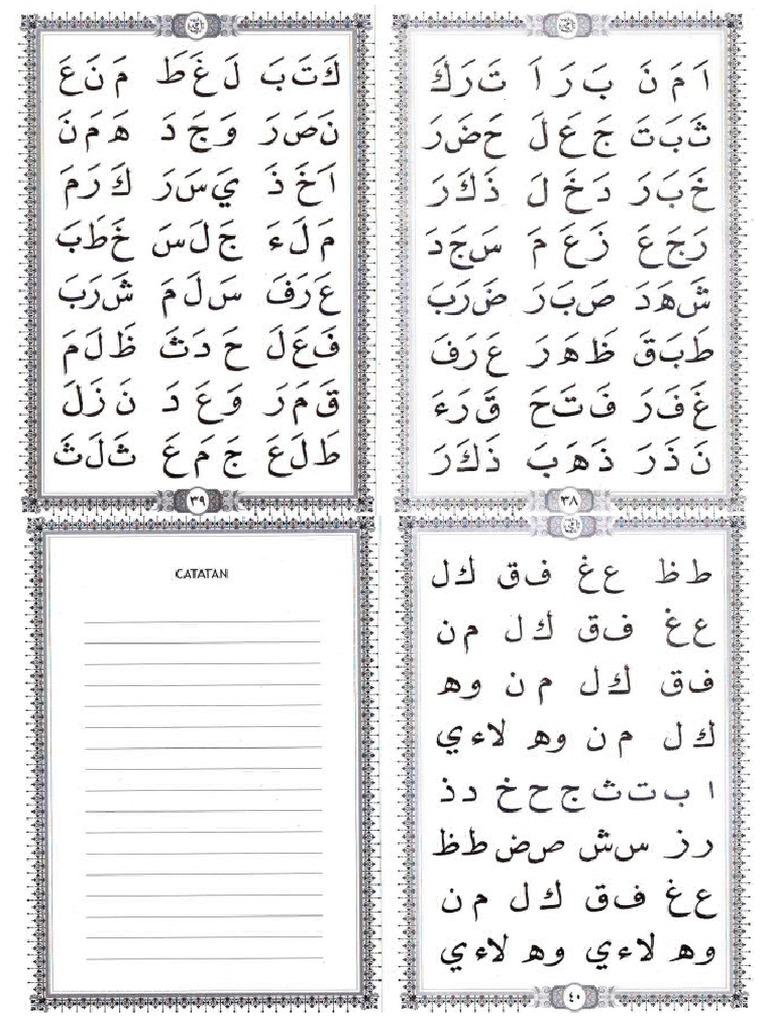 اَ مَ نَ بَ رَ اَ تَ رَ كَ
ثَ بَ تَ جَ عَ لَ حَ ضَ رَ
خَ بَ رَ دَ خَ لَ ذَ كَ رَ
رَ جَ عَ زَ عَ مَ سَ جَ دَ
شَ هَ دَ صَ بَ رَ ضَ رَ بَ
طَ بَ قَ ظَ هَ رَ عَ رَ فَ
غَ فَ رَ فَ تَ حَ قَ رَ ءَ
نَ ذَ رَ ذَ هَ بَ ذَ كَ رَ
٣٨
كَ تَ بَ لَ غَ طَ مَ نَ عَ
نَ صَ رَ وَ جَ دَ هَ مَ نَ
اَ خَ ذَ يَ سَ رَ كَ رَ مَ
مَ لَ ءَ جَ لَ سَ خَ طَ بَ
عَ رَ فَ سَ لَ مَ شَ رَ بَ
فَ عَ لَ حَ دَ ثَ ظَ لَ مَ
قَ مَ رَ وَ عَ دَ نَ زَ لَ
طَ لَ عَ جَ مَ عَ ثَ لَ ثَ
٣٩
ط ظ ع غ ف ق ك ل
ع غ ف ق ك ل م ن
ف ق ك ل م ن و ه
ك ل م ن و ه لا ء ي
ا ب ت ث ج ح خ د ذ
ر ز س ش ص ض ط ظ
ع غ ف ق ك ل م ن
و ه لا ء ي و ه لا ء ي
٤٠
CATATAN